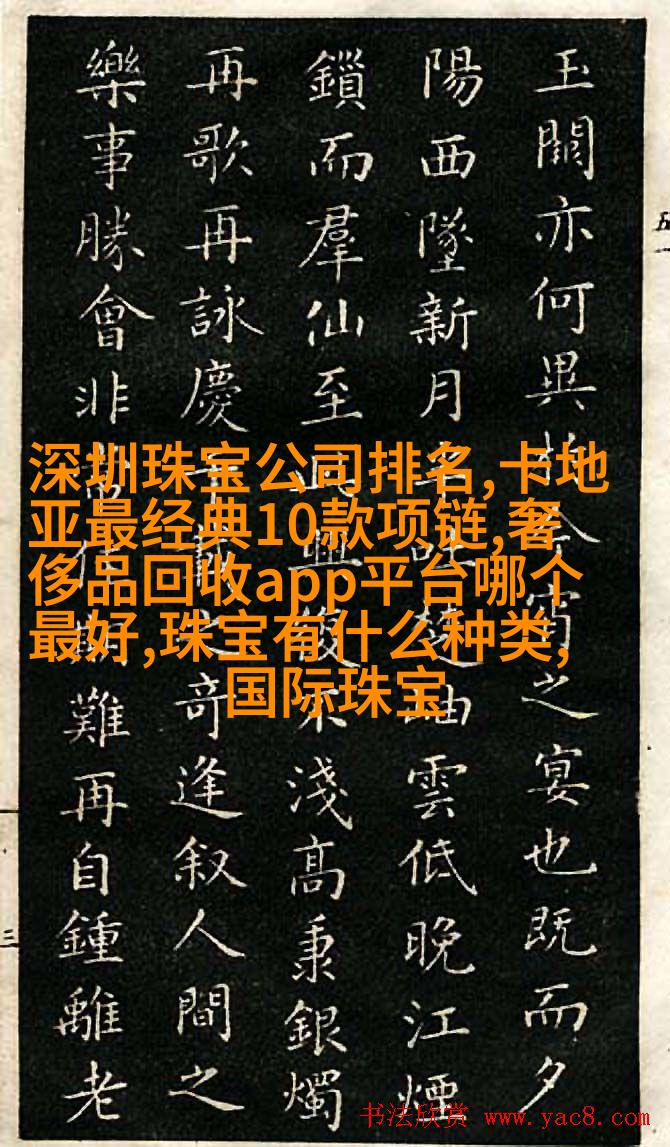 玉闕亦何異於今宵之宴也既而夕
陽西墜新月半吐楚岫雲低晚江煙
鎖而羣仙至此興復不淺高秉銀燭
再歌再詠慶千載之奇逢叙人間之
樂事勝會非常佳期難再自鍾離老
深圳珠宝公司排名,卡地
亚最经典10款项链,奢
侈品回收app平台哪个
最好,珠宝有什么种类,
国际珠宝
书法欣赏 www.yac8.com